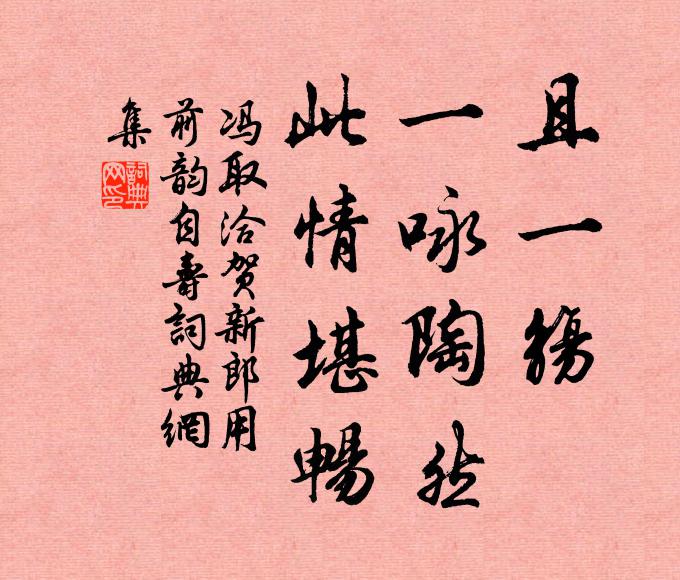 且一觴
一咏陶然
此情堪暢
冯取洽贺新郎用
前韵自寿詞典網
集
詞典网印